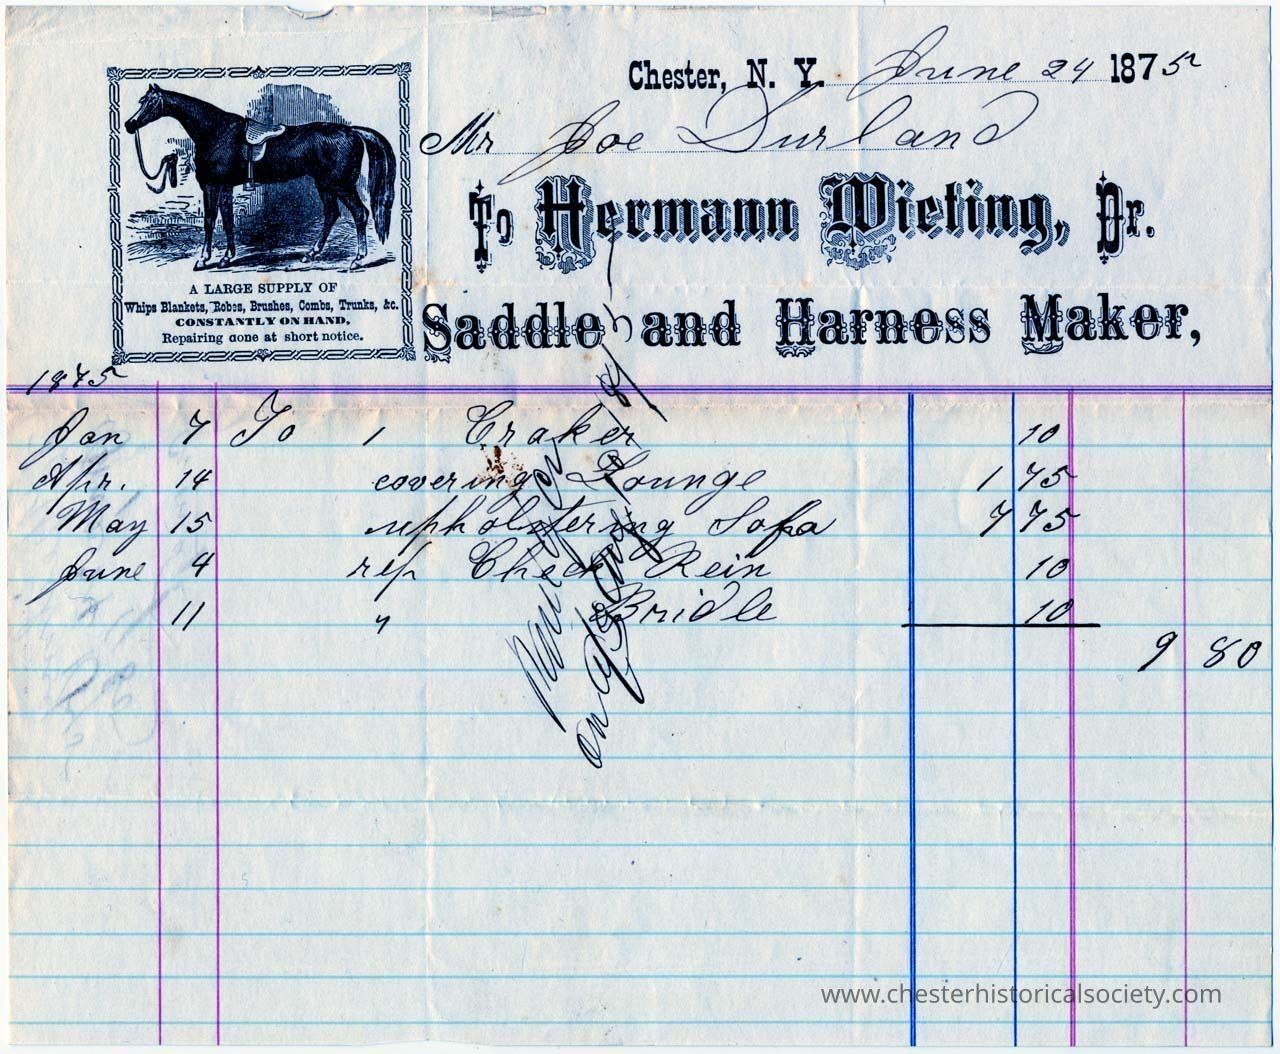 Chester, N. Y. June 24 1875
Mr Joe Durland
To Hermann Wieting, Dr.
Saddle and Harness Maker,
A LARGE SUPPLY OF
Whips Blankets, Robes, Brushes, Combs, Trunks, &c.
CONSTANTLY ON HAND.
Repairing done at short notice.
1875
Jan 7 To 1 Craker 10
Apr. 14 covering Lounge 1 75
May 15 upholstering Sofa 7 75
June 4 rep Check Rein 10
11 " Bridle 10
9 80
www.chesterhistoricalsociety.com